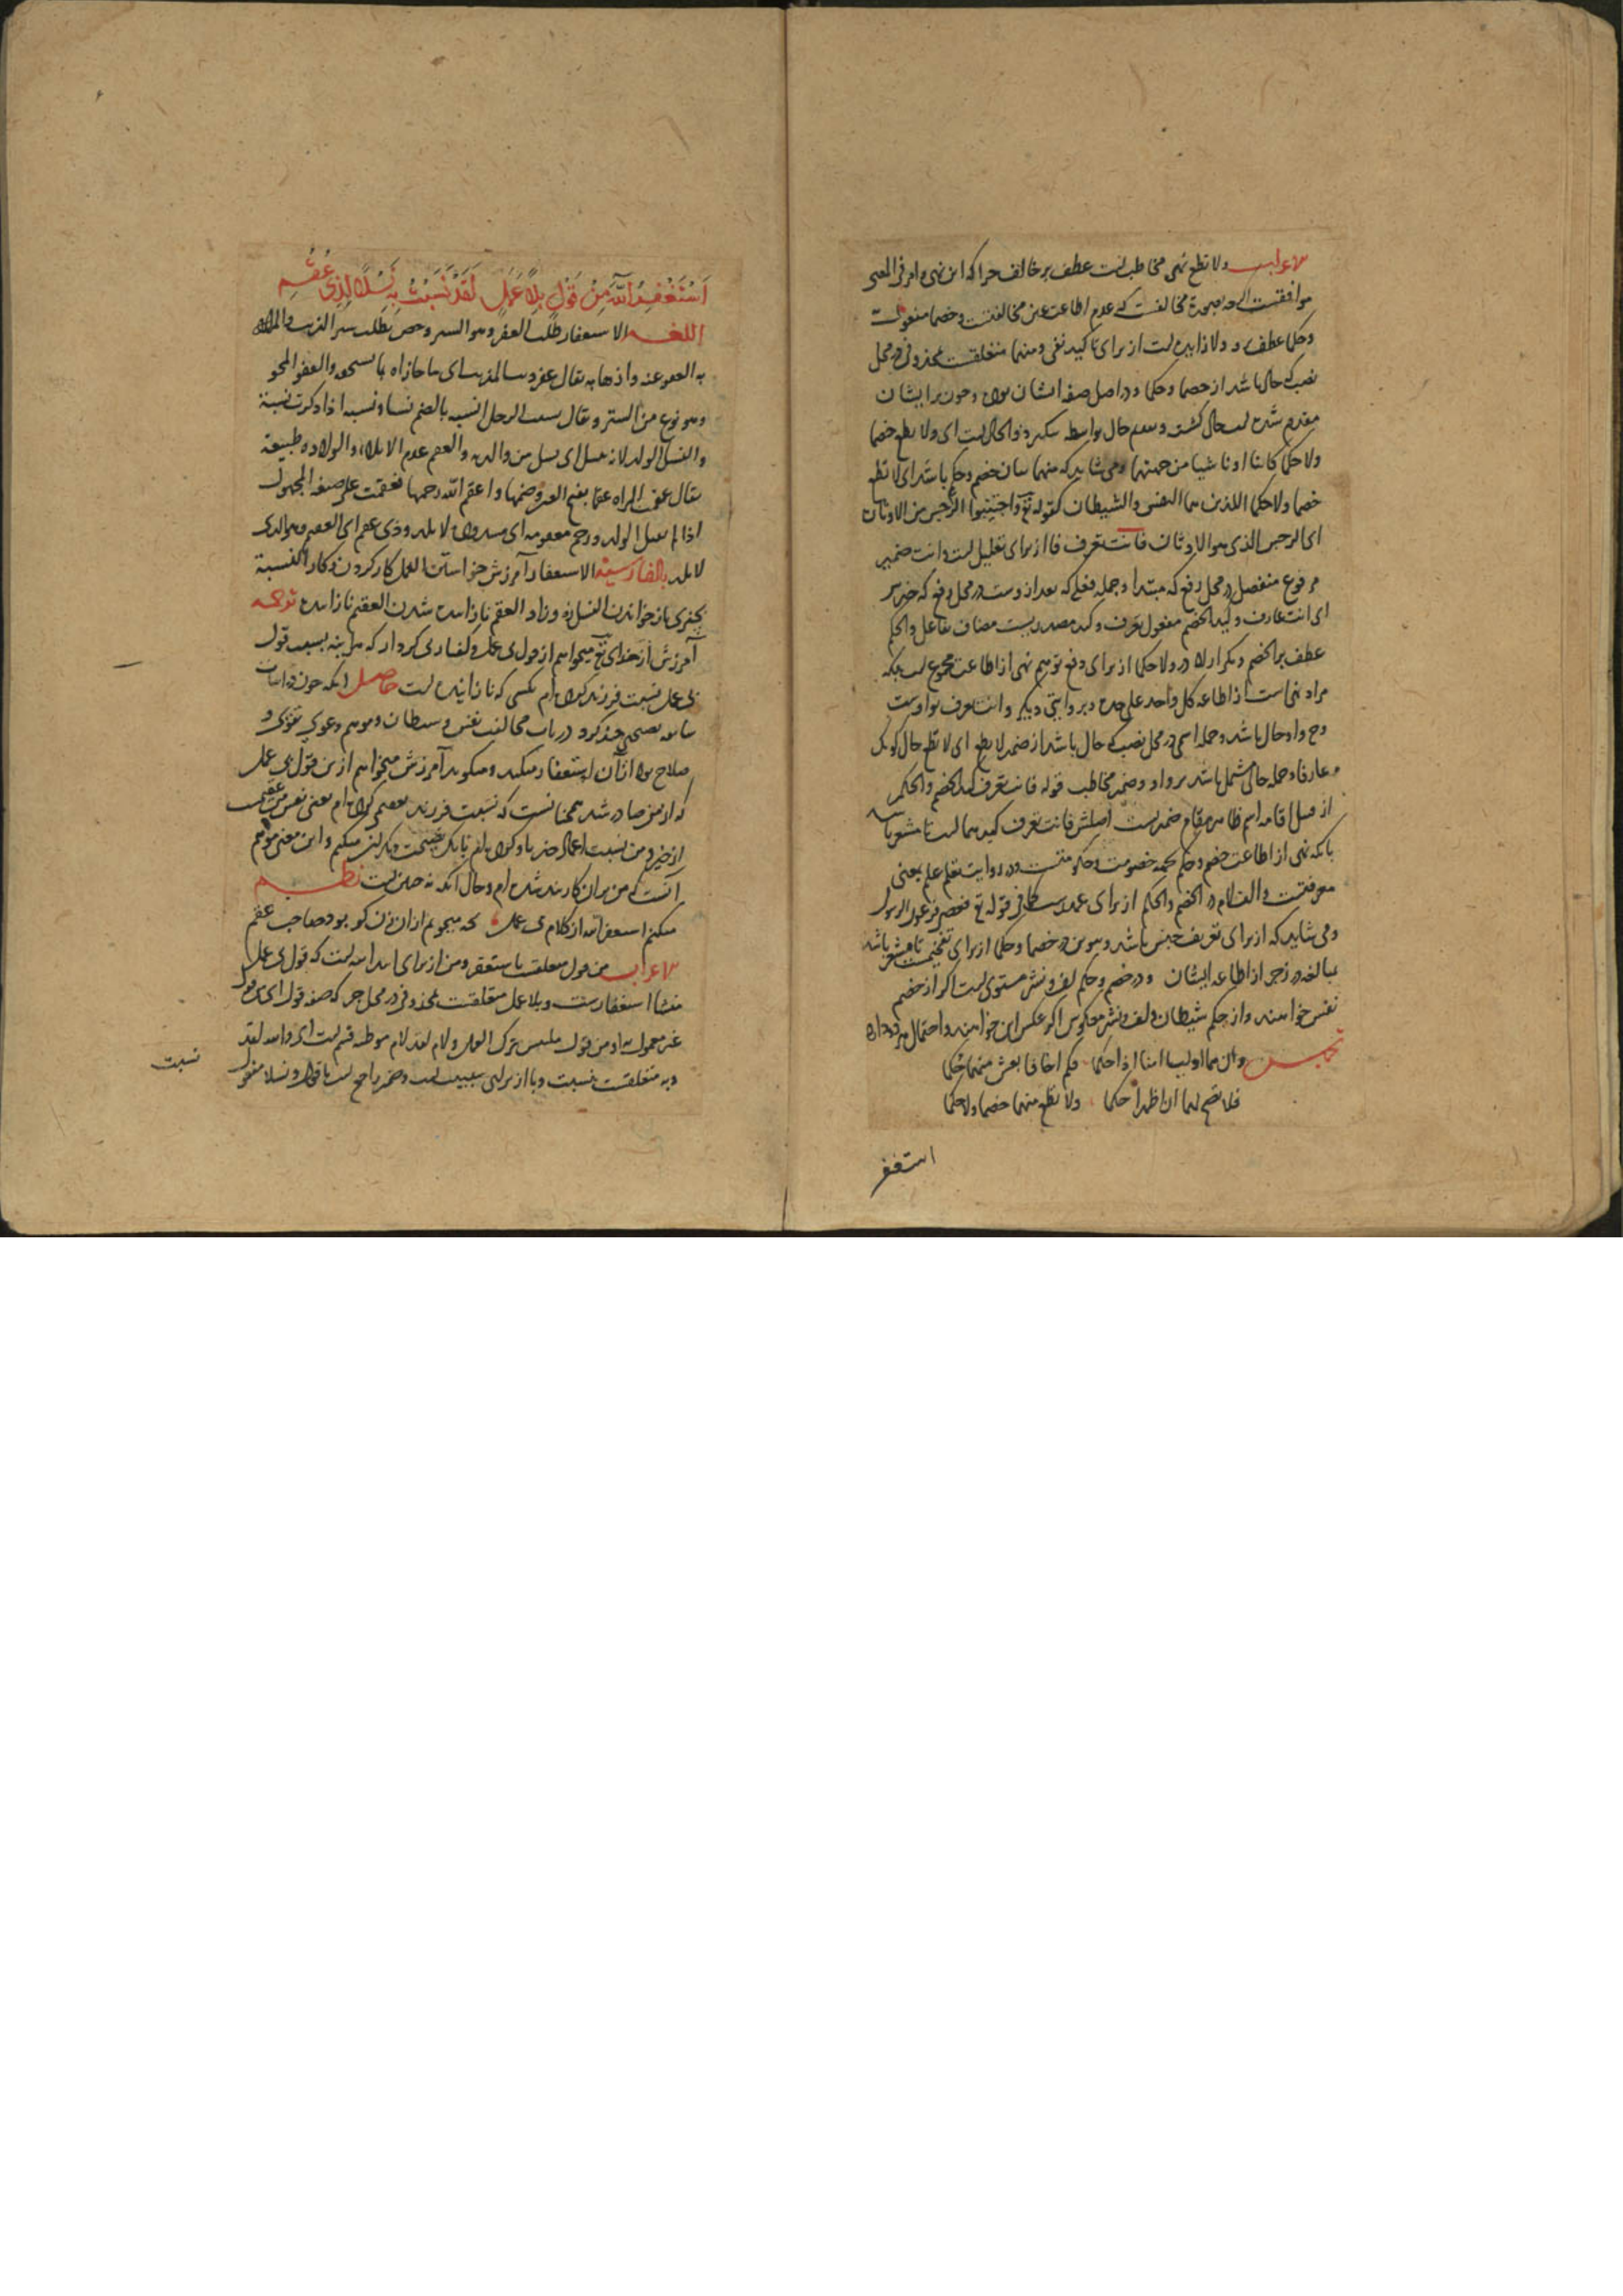 الاعراب ولا تطع نهی مخاطبست عطف بر خالف چرا که این نهی و امر فی المعنی
موافقست اگرچه بصورة مخالفست که عدم اطاعت عین مخالفتست و خصما مفعولست
و حکما عطف برو و لا زایده است از برای تاکید نفی و منهما متعلقست بمحذوفی در محل
نصب که حال باشد از خصما و حکما و در اصل صفه ایشان بوده و چون بر ایشان
مقدم شده است حال گشت و تقدیم حال بواسطه تنکیر ذوالحال است ای ولا تطع خصما
ولا حکما کائنا او ناشیا من جهتهما و می شاید که منهما بیان خصم و حکم باشد ای لا تطع
خصما ولا حکما اللذین هما النفس والشیطان کقوله تع واجتنبوا الرجس من الاوثان
ای الرجس الذی هو الاوثان فانت تعرف فا از برای تعلیل است و انت ضمیر
مرفوع منفصل در محل رفع که مبتدا و جمله فعلی که بعد ازوست در محل رفع که خبر
ای انت عارف و کید الخصم مفعول تعرف و کید مصدریست مضاف بفاعل والحکم
عطف بر الخصم و تکرار لا در ولا حکما از برای دفع توهم نهی از اطاعت مجموع است بلکه
مراد نهی است از اطاعه کل واحد علی حده و بروایتی دیگر وانت تعرف بواوست
وح واو حال باشد و جمله اسمی در محل نصب که حال باشد از ضمیر لا تطع ای لا تطع حال کونک
عارفا و جمله حالی مشتمل باشد بر واو و ضمیر مخاطب قوله فانت تعرف کید الخصم والحکم
از قبیل اقامه اسم ظاهر مقام ضمیر است اصلش فانت تعرف کیدهما است تا مشعر باشد
بآنکه نهی از اطاعت خصم و حکم بجهه خصومت و حکومتست و در روایت تعلم علم بمعنی
معرفتست والف لام در الخصم والحکم از برای عهد است کما فی قوله تع فعصی فرعون الرسول
و می شاید که از برای تعریف جنس باشد و تنوین در خصما و حکما از برای تفخیمست تا مشعر باشد
بمبالغه در زجر از اطاعه ایشان و در خصم و حکم لف و نشر مستوی است اگر از خصم
نفس خواهند و از حکم شیطان و لف و نشر معکوس اگر عکس این خواهند و احتمال هر دو دارد
تخمیس وان هما امنا اذا حکما فکم منهما حکما
فلا تصخ لهما ان اظهرا حکما ولا تطع منهما خصما ولا حکما
استغفر
اَسْتَغْفِرُ اللّٰهَ مِنْ قَوْلٍ بِلَا عَمَلٍ لَقَدْ نَسَبْتُ بِهِ نَسْلًا لِذِی عُقُمِ
اللغه الاستغفار طلب الغفر و هو الستر و خص بطلب ستر الذنب والمراد
به العفو عنه و اذهابه یقال غفر والعفو المحو
و هو نوع من الستر و یقال نسب الرجل انسبه بالضم نسبا و نسبه اذا ذکرت نسبه
والنسل الولد لانه ینسل ای یسل من والدیه والعقم عدم الایلاد والولاده طبیعة
یقال عقمت المراه عقما بفتح العین و ضمها و اعقم الله رحمها فعقمت علی صیغه المجهول
اذا لم تقبل الولد و رحم معقومه ای مسدوده لا تلد و ذی عقم ای العقیم و هو الذی
لا یلد بالفارسیة الاستغفار آمرزش خواستن العمل کار کردن و کار النسبة
بچیزی باز خواندن النسل زه و زاد العقم نازاینده شدن العقیم نازاینده ترجمه
آمرزش از خدای تع میخواهم از قول بی عمل و گفتار بی کردار که هر آینه بسبب قول
بی عمل نسبت فرزند کرده ام بکسی که نازاینده است حاصل آنکه چون در ابیات
سابقه نصیحتی چند کرد در باب مخالفت نفس و شیطان و موهم دعوی تقوی و
صلاح بود از آن استغفار میکند و میگوید آمرزش میخواهم ازین قول بی عمل
که از من صادر شد همچنانست که نسبت فرزند بعقیم کرده ام یعنی نفس من عقیمست
از خیر و من نسبت اعمال خیر باو کرده ام بآنک نصیحت دیگران میکنم و این معنی موهم
آنست که من بدان کار بند شده ام و حال آنکه نه چنین است نظم
میکنم استغفر الله از کلام بی عمل بچه میجویم از آن زن کو بود صاحب عقم
الاعراب من قول متعلقست باستغفر و من از برای ابتدا است که قول بی عمل
منشأ استغفارست و بلا عمل متعلقست بمحذوفی در محل جر که صفه قول ای من قول
غیر معمول به او من قول ملتبس بترک العمل و لام لقد لام موطئه قسم است ای والله لقد
و به متعلقست بنسبت و با از برای سببیت است و ضمیر راجع است با قول و نسلا مفعول
نسبت